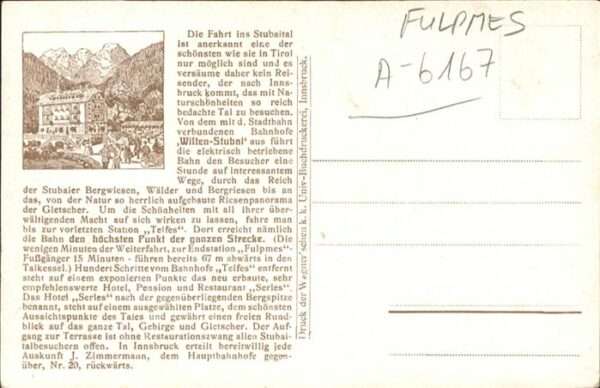 Die Fahrt ins Stubaital
ist anerkannt eine der
schönsten wie sie in Tirol
nur möglich sind und es
versäume daher kein Rei-
sender, der nach Inns-
bruck kommt, das mit Na-
turschönheiten so reich
bedachte Tal zu besuchen.
Von dem mit d. Stadtbahn
verbundenen Bahnhofe
„Wilten-Stubai' aus führt
die elektrisch betriebene
Bahn den Besucher eine
Stunde auf interessantem
Wege, durch das Reich
der Stubaier Bergwiesen, Wälder und Bergriesen bis an
das, von der Natur so herrlich aufgebaute Riesenpanorama
der Gletscher. Um die Schönheiten mit all ihrer über-
wältigenden Macht auf sich wirken zu lassen, fahre man
bis zur vorletzten Station „Telfes". Dort erreicht nämlich
die Bahn den höchsten Punkt der ganzen Strecke. (Die
wenigen Minuten der Weiterfahrt, zur Endstation „Fulpmes"-
Fußgänger 15 Minuten - führen bereits 67 m abwärts in den
Talkessel.) Hundert Schritte vom Bahnhofe „Telfes" entfernt
steht auf einem exponierten Punkte das neu erbaute, sehr
empfehlenswerte Hotel, Pension und Restaurant „Serles".
Das Hotel „Serles" nach der gegenüberliegenden Bergspitze
benannt, steht auf einem ausgewählten Platze, dem schönsten
Aussichtspunkte des Tales und gewährt einen freien Rund-
blick auf das ganze Tal, Gebirge und Gletscher. Der Auf-
gang zur Terrasse ist ohne Restaurationszwang allen Stubai-
talbesuchern offen. In Innsbruck erteilt bereitwillig jede
Auskunft J. Zimmermann, dem Hauptbahnhofe gegen-
über, Nr. 20, rückwärts.
Druck der Wagner'schen k. k. Univ-Buchdruckerei, Innsbruck.
FULPMES
A-6167